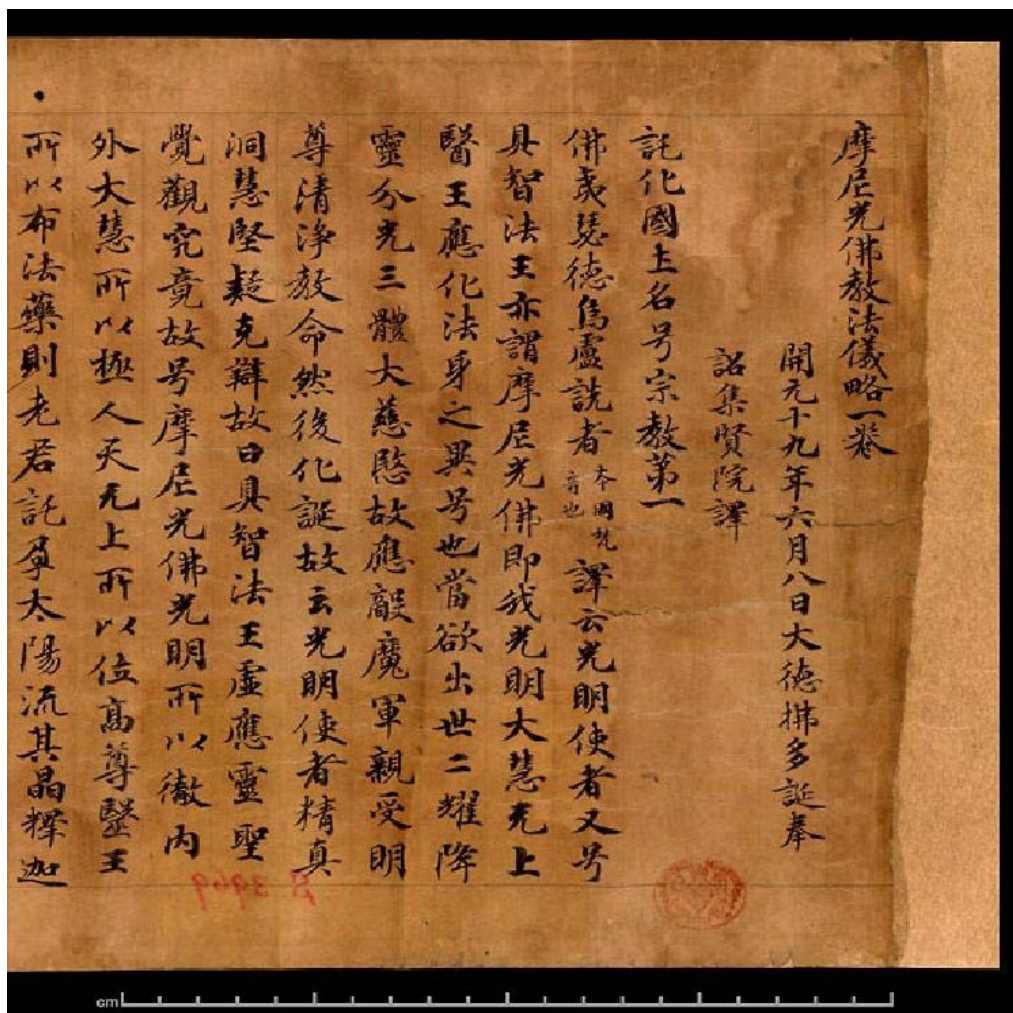 摩尼光佛教法儀略一卷
開元十九年六月八日大德拂多誕奉
詔集賢院譯
託化國土名号宗教第一
佛夷瑟德烏盧詵者本國梵音也譯云光明使者又号
具智法王亦謂摩尼光佛即我光明大慧无上
醫王應化法身之異号也當欲出世二耀降
靈分光三體大慈愍故應敵魔軍親受明
尊清淨教命然後化誕故云光明使者精真
洞慧堅疑克辯故曰具智法王虛應靈聖
覺觀究竟故号摩尼光佛光明所以徹內
外大慧所以極人天无上所以位高尊醫王
所以布法藥則老君託孕太陽流其晶釋迦
cm